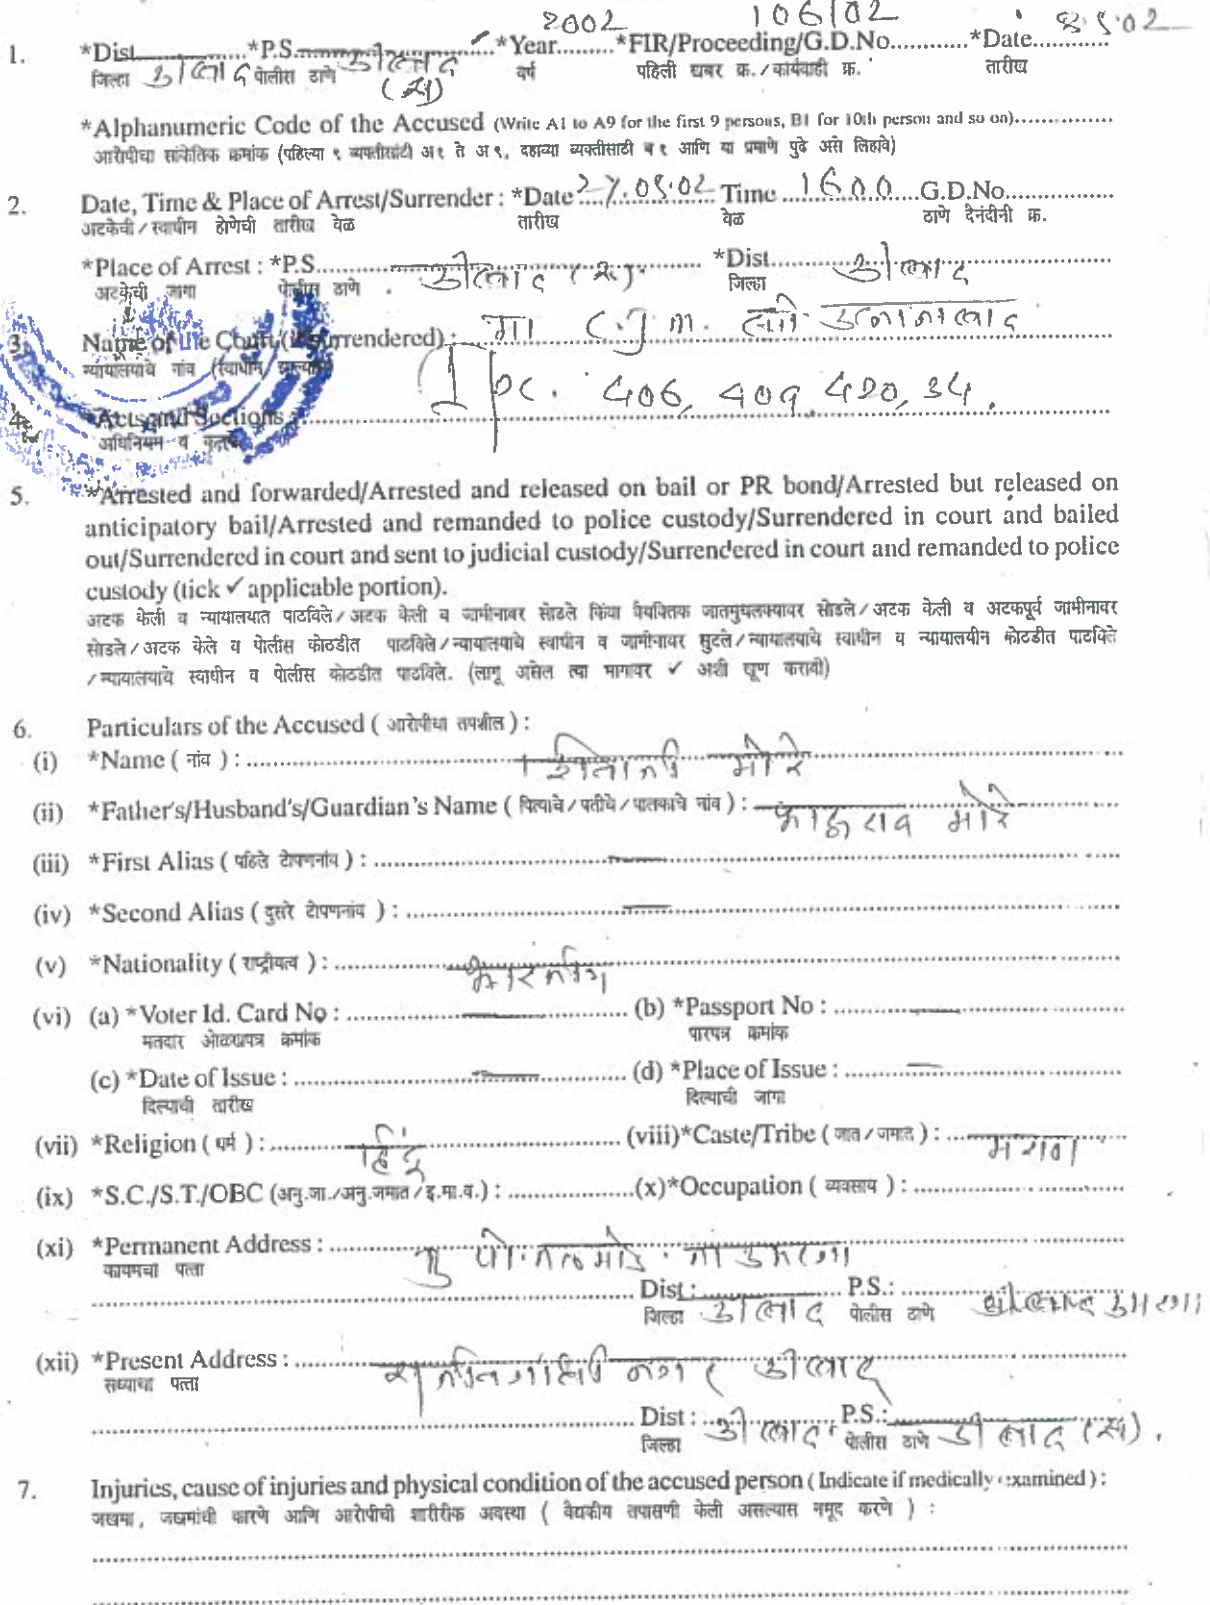 2002 106/02 8.5.02
1. *Dist. *P.S. *Year *FIR/Proceeding/G.D.No. *Date
जिल्हा पोलीस ठाणे वर्ष पहिली खबर क्र./कार्यवाही क्र. तारीख
*Alphanumeric Code of the Accused (Write A1 to A9 for the first 9 persons, B1 for 10th person and so on)
आरोपीचा सांकेतिक क्रमांक (पहिल्या ९ व्यक्तींसाठी अ१ ते अ९, दहाव्या व्यक्तीसाठी ब१ आणि या प्रमाणे पुढे असे लिहावे)
2. Date, Time & Place of Arrest/Surrender : *Date 27.05.02 Time 1600 G.D.No.
अटकेची/स्वाधीन होणेची तारीख वेळ तारीख वेळ ठाणे दैनंदीनी क्र.
*Place of Arrest : *P.S. *Dist.
अटकेची जागा पोलीस ठाणे जिल्हा
3. Name of the Court (if surrendered) : मा C.J.M.
न्यायालयाचे नांव (स्वाधीन झाल्यास)
4. *Acts and Sections : Ipc. 406, 409, 420, 34.
अधिनियम व कलमे
5. *Arrested and forwarded/Arrested and released on bail or PR bond/Arrested but released on
anticipatory bail/Arrested and remanded to police custody/Surrendered in court and bailed
out/Surrendered in court and sent to judicial custody/Surrendered in court and remanded to police
custody (tick ✓ applicable portion).
अटक केली व न्यायालयात पाठविले/अटक केली व जामीनावर सोडले किंवा वैयक्तिक जातमुचलक्यावर सोडले/अटक केली व अटकपूर्व जामीनावर
सोडले/अटक केले व पोलीस कोठडीत पाठविले/न्यायालयाचे स्वाधीन व जामीनावर सुटले/न्यायालयाचे स्वाधीन व न्यायालयीन कोठडीत पाठविले
/न्यायालयाचे स्वाधीन व पोलीस कोठडीत पाठविले. (लागू असेल त्या भागावर ✓ अशी खूण करावी)
6. Particulars of the Accused ( आरोपीचा तपशील ) :
(i) *Name ( नांव ) : शिवाजी मोरे
(ii) *Father's/Husband's/Guardian's Name ( पित्याचे/पतीचे/पालकाचे नांव ) : मोरे
(iii) *First Alias ( पहिले टोपणनांव ) : —
(iv) *Second Alias ( दुसरे टोपणनांव ) : —
(v) *Nationality ( राष्ट्रीयत्व ) : भारतीय
(vi) (a) *Voter Id. Card No : — (b) *Passport No : —
मतदार ओळखपत्र क्रमांक पारपत्र क्रमांक
(c) *Date of Issue : — (d) *Place of Issue : —
दिल्याची तारीख दिल्याची जागा
(vii) *Religion ( धर्म ) : हिंदू (viii) *Caste/Tribe ( जात/जमात ) : मराठा
(ix) *S.C./S.T./OBC (अनु.जा./अनु.जमात/इ.मा.व.) : (x) *Occupation ( व्यवसाय ) :
(xi) *Permanent Address : मु पो.
कायमचा पत्ता
Dist : P.S. :
जिल्हा पोलीस ठाणे
(xii) *Present Address : नगर
सध्याचा पत्ता
Dist : P.S. :
जिल्हा पोलीस ठाणे
7. Injuries, cause of injuries and physical condition of the accused person ( Indicate if medically examined ) :
जखमा, जखमांची कारणे आणि आरोपीची शारीरीक अवस्था ( वैद्यकीय तपासणी केली असल्यास नमूद करणे ) :